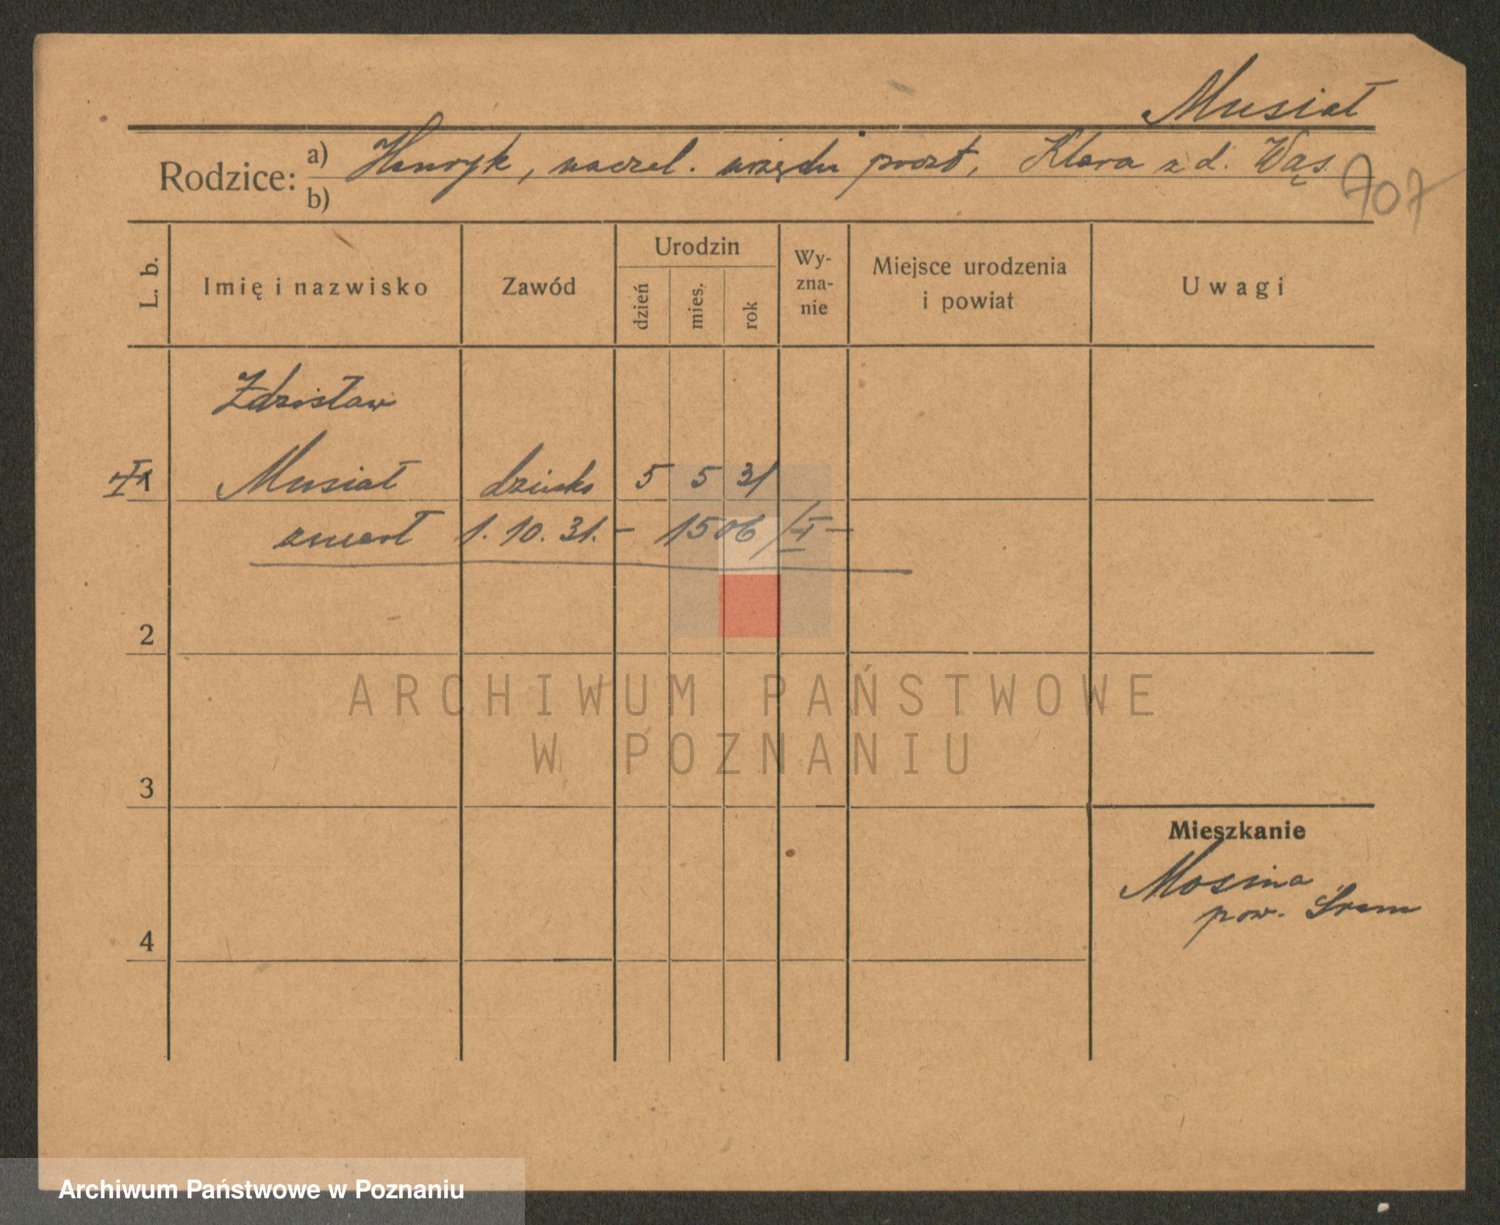 Musiał
Rodzice: a) Henryk, naczel. urzędu poczt, Klara z d. Wąs.
b)
707
L. b.
Imię i nazwisko
Zawód
Urodzin
dzień
mies.
rok
Wy-
zna-
nie
Miejsce urodzenia
i powiat
Uwagi
Zdzisław
1 Musiał dziecko 5 5 31
zmarł 1. 10. 31. – 1506/I –
2
ARCHIWUM PAŃSTWOWE
W POZNANIU
3
Mieszkanie
Mosina
pow. Śrem
4
Archiwum Państwowe w Poznaniu